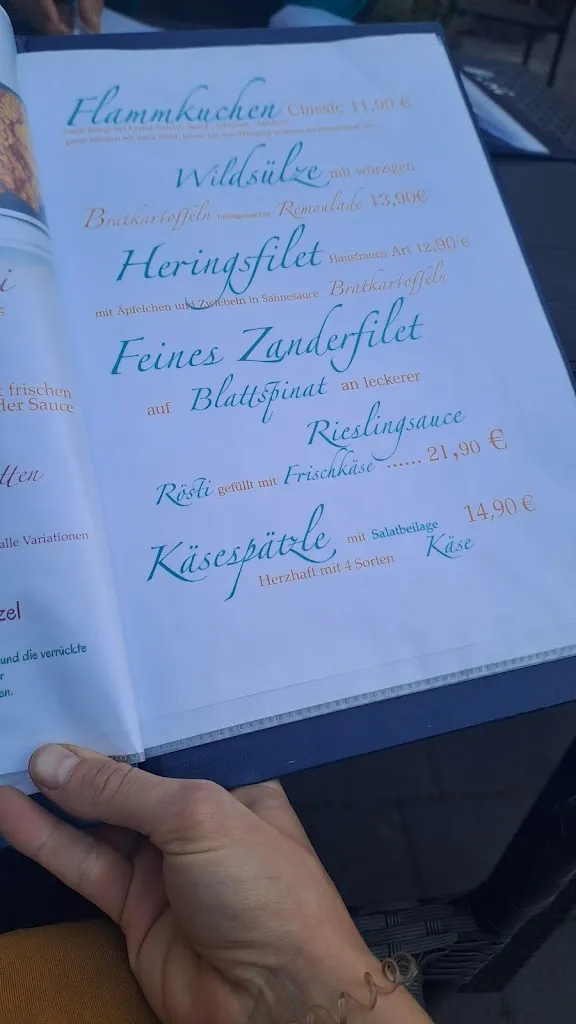 i
frischen
der Sauce
tten
alle Variationen
zel
und die verrückte
r
en.
Flammkuchen Classic 11,90 €
Wildsülze mit würzigen
Bratkartoffeln Remoulade 13,90€
Heringsfilet Hausfrauen Art 12,90 €
mit Äpfelchen und Zwiebeln in Sahnesauce Bratkartoffeln
Feines Zanderfilet
auf Blattspinat an leckerer
Rieslingsauce
Rösti gefüllt mit Frischkäse ...... 21,90 €
Käsespätzle mit Salatbeilage 14,90 €
Herzhaft mit 4 Sorten Käse